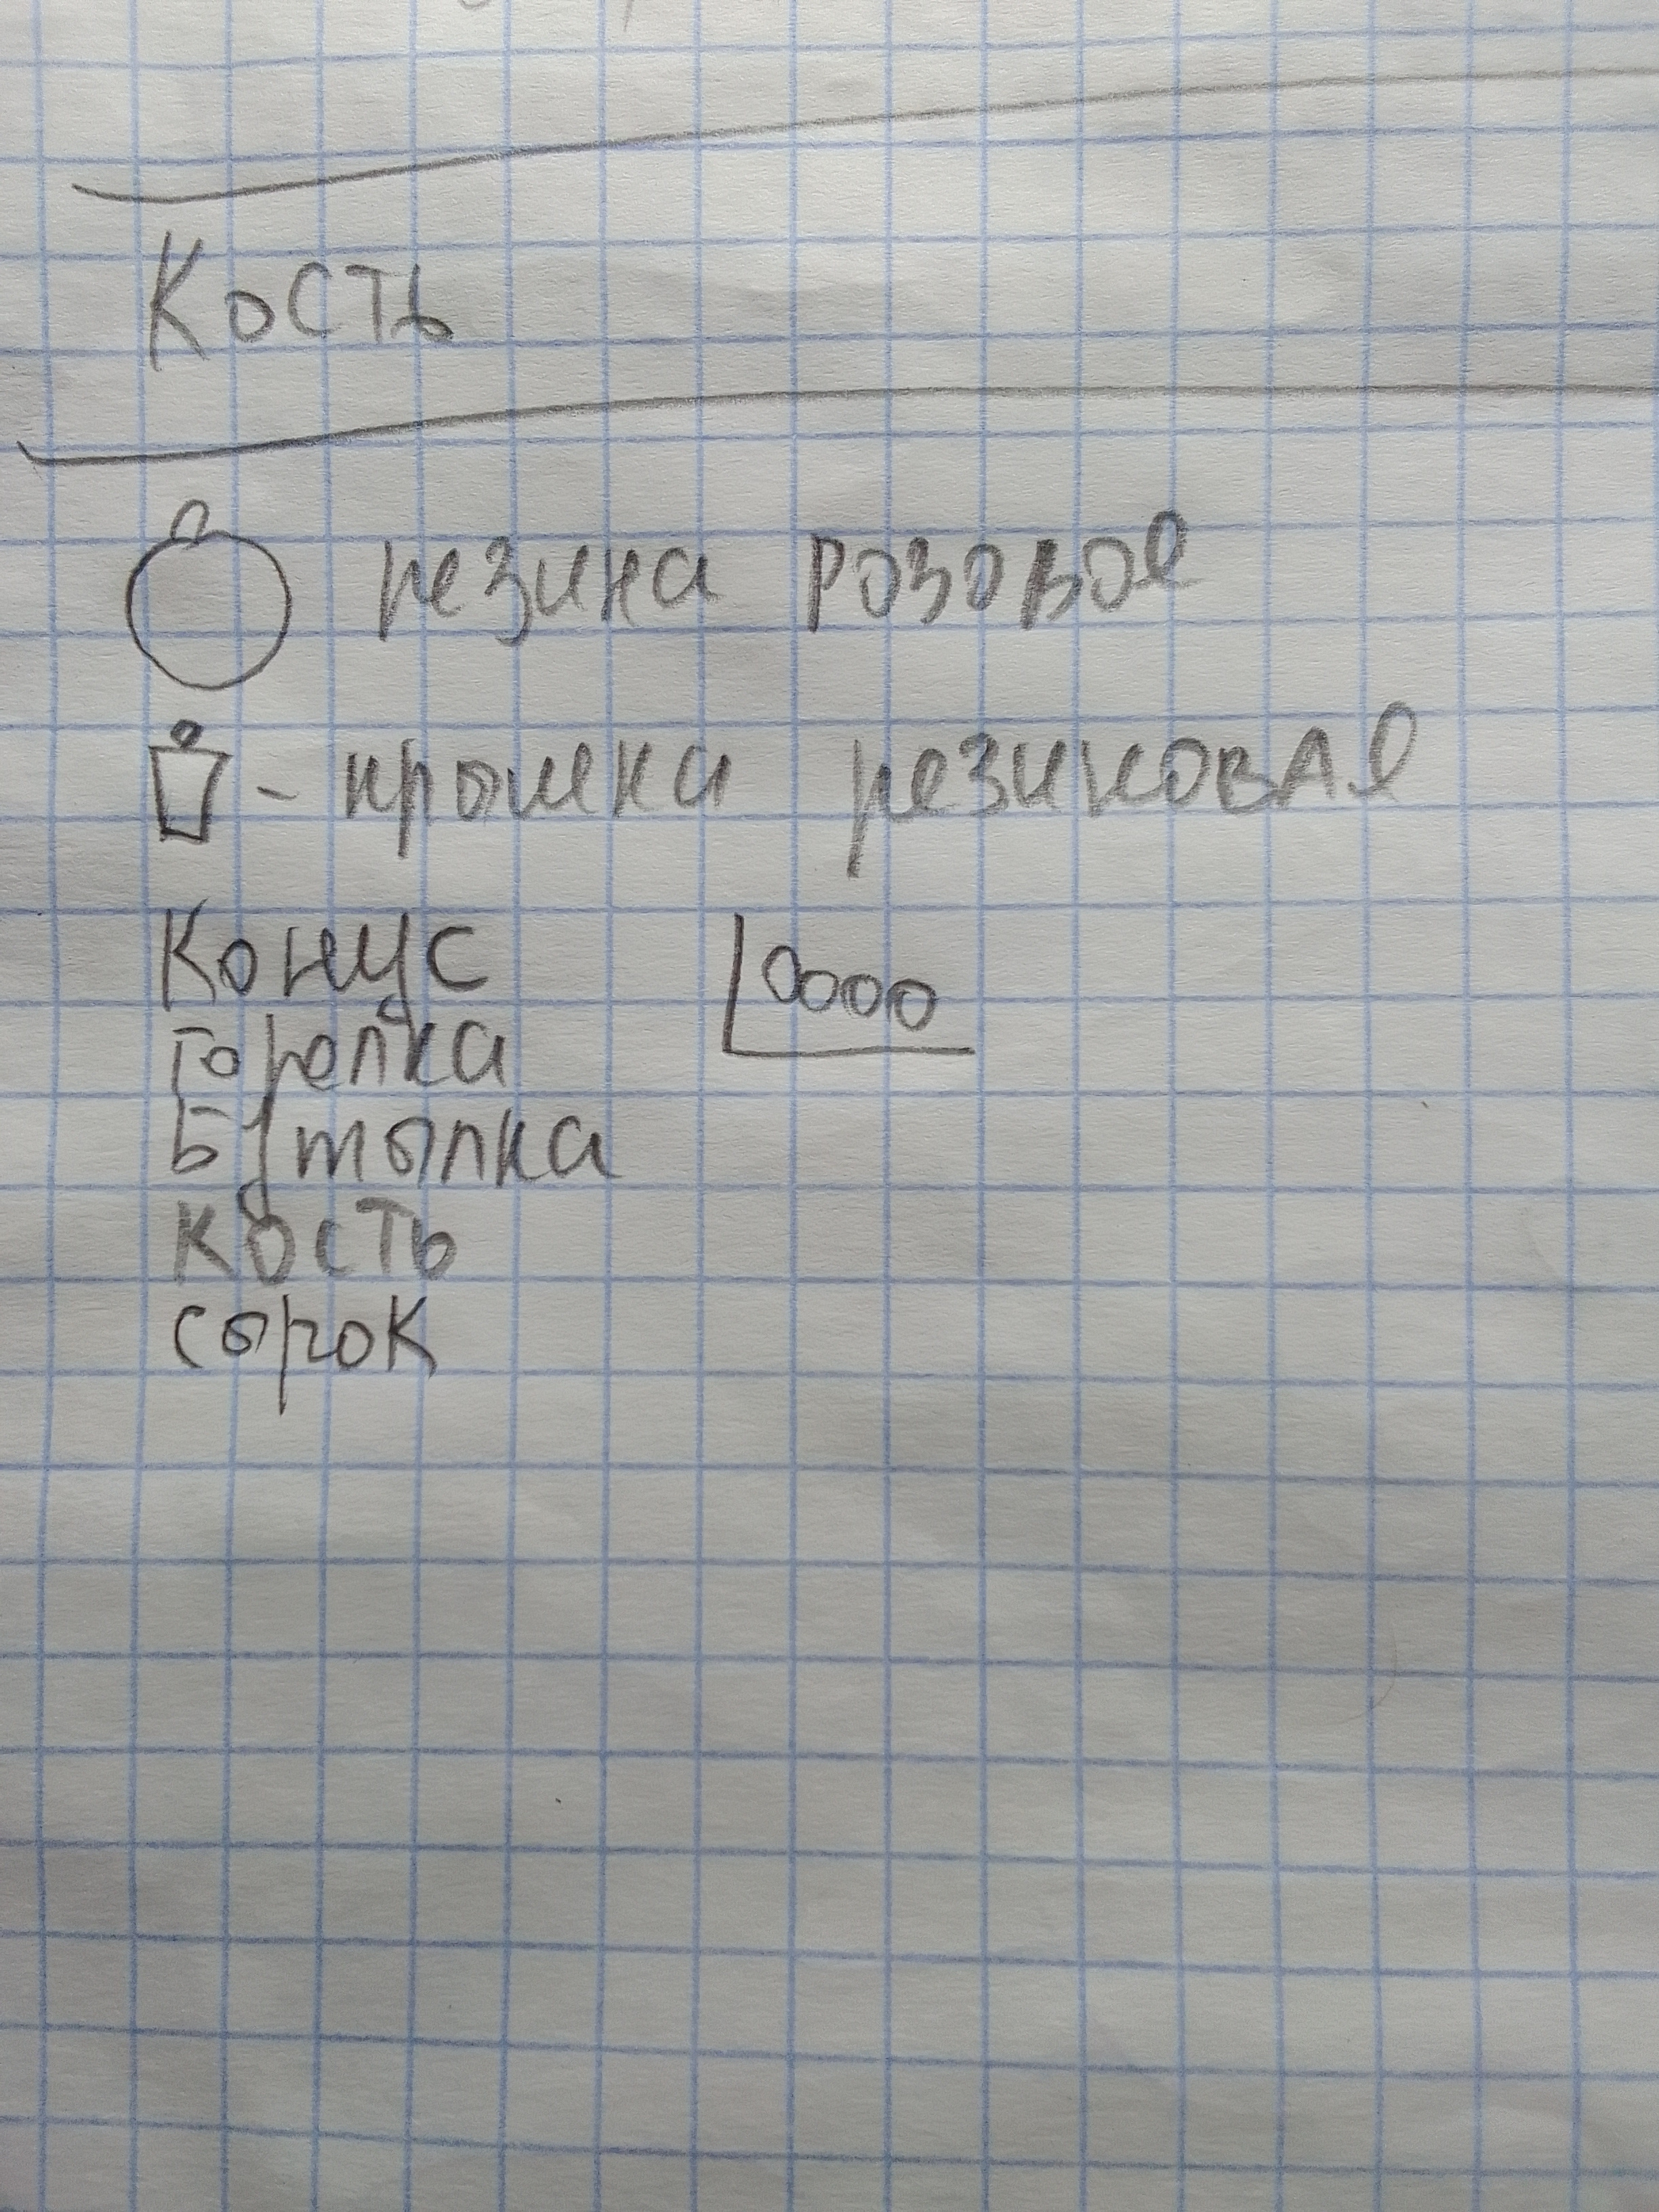 Кость
резина розовое
- крошка резиновая
Конус
Горелка
0000
Бутылка
Кость
сырок